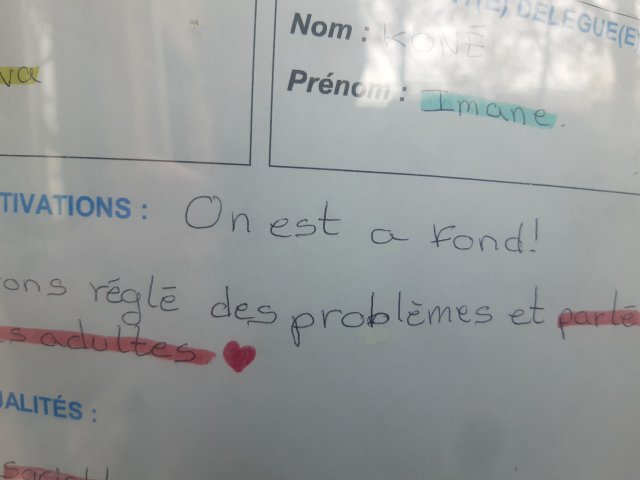 DÉLÉGUÉ(E)
Nom : KONÉ
va
Prénom : Imane.
TIVATIONS : On est a fond!
ons réglé des problèmes et parlé
s adultes ♥
ALITÉS :